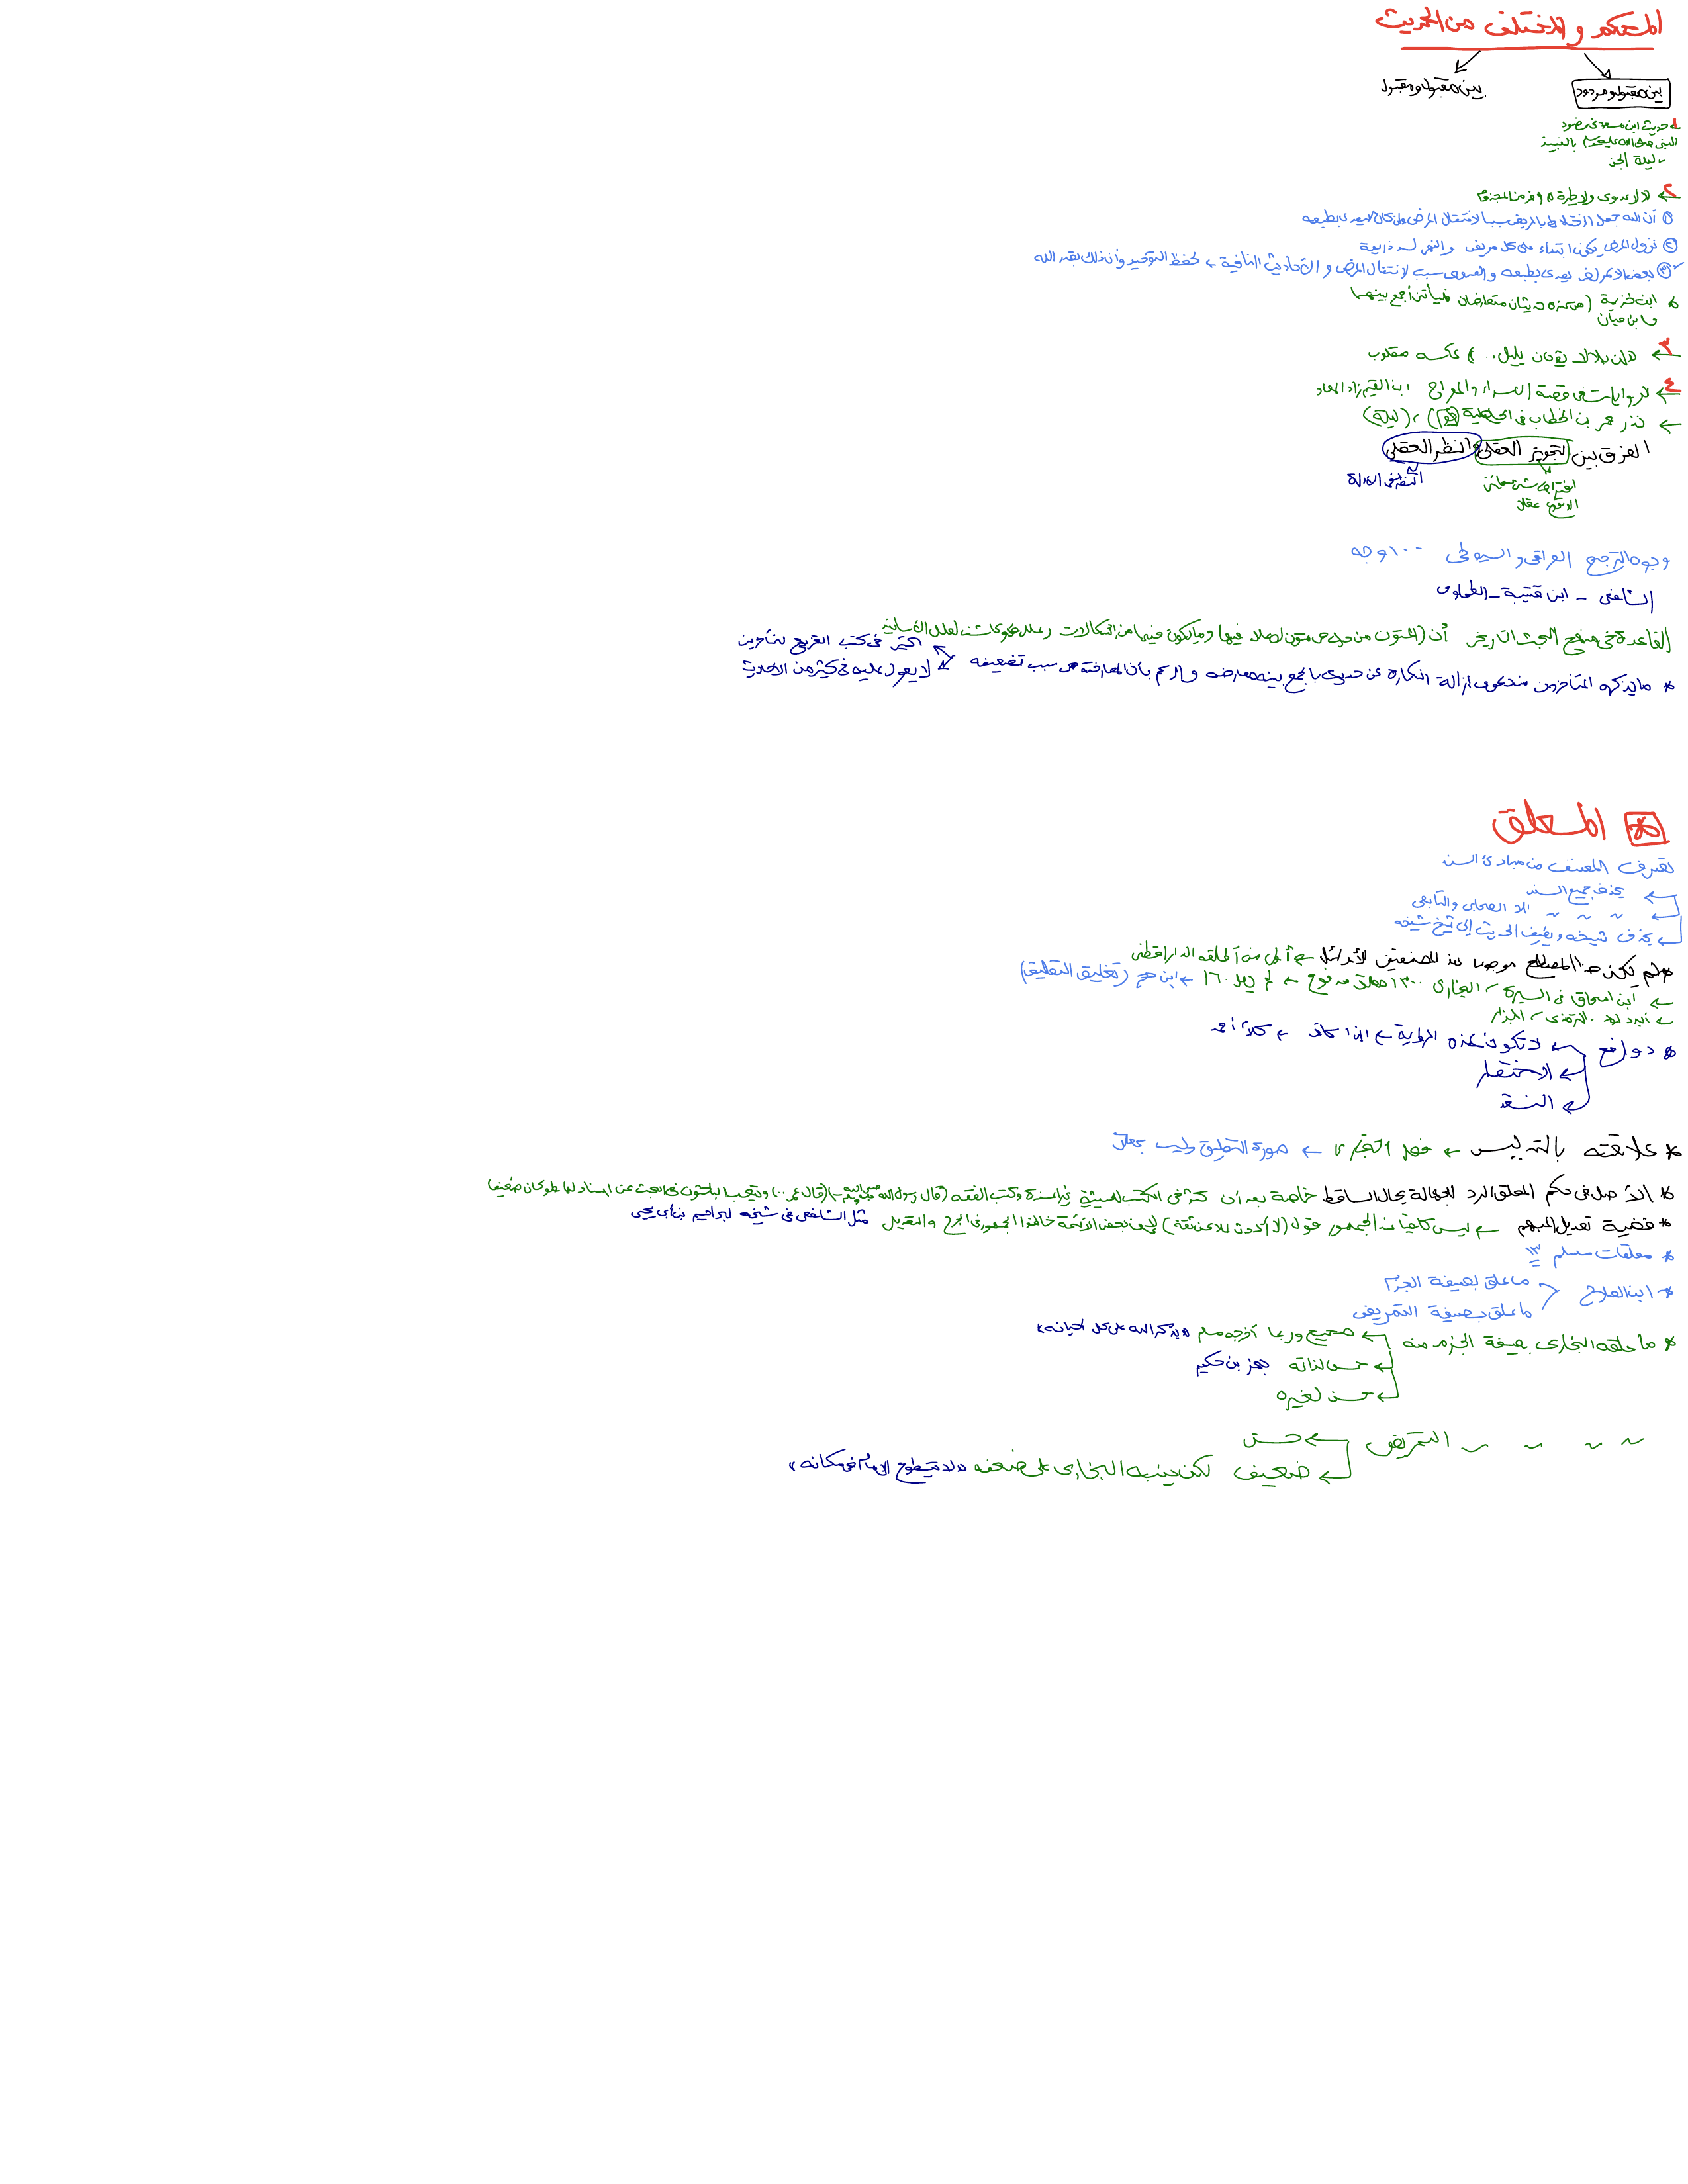 المحكم والمختلف من الحديث
بين مقبول ومردود
بين مقبول ومقبول
١ حديث ابن مسعود في وضوء
النبي صلى الله عليه وسلم بالنبيذ
ليلة الجن
٢ ← لا عدوى ولا طيرة / وفر من المجذوم
① أن الله جعل الاختلاط بالمريض سببا لانتقال المرض وإن كان لا يعدي بطبعه
② نزول المرض يكون ابتداء على كل مريض والنهي لسد ذريعة
③ بعض الأمراض يعدي بطبعه والعدوى سبب لانتقال المرض والأحاديث النافية ← لحفظ التوحيد وأن ذلك بقدر الله
* ابن خزيمة (من عنده حديثان متعارضان فليأتني أجمع بينهما
وابن حبان
٣ ← إن بلالا يؤذن بليل .. ) عكسه مقلوب
٤ ← الروايات في قصة الإسراء والمعراج ابن القيم زاد المعاد
← نذر عمر بن الخطاب في الجاهلية (يوم) ، (ليلة)
الفرق بين التجويز العقلي والنظر العقلي
افتراض شيء جائز
الوقوع عقلا
النظر في الأدلة
وجوه الترجيح العراقي والسيوطي ١٠٠ وجه
الشافعي - ابن قتيبة - الطحاوي
القاعدة في منهج البحث التاريخي أن (المتون من حيث هي متون لا علل فيها وما يكون فيها من إشكالات وعلل هو كاشف لعلل الأسانيد
* ما يذكره المتأخرون من دعوى إزالة النكارة عن حديث بالجمع بينه ومعارضه والزعم بأن المعارضة هي سبب تضعيفه
← أكثر في كتب التخريج لمتأخرين
← لا يعول عليه في كثير من الأحاديث
* المعلق
تعريف المصنف من مبادئ السند
← يحذف جميع السند
← ~ ~ ~ إلا الصحابي والتابعي
← يحذف شيخه ويضيف الحديث إلى شيخ شيخه
* لم يكن هذا المصطلح موجودا عند المصنفين الأوائل ← أول من أطلقه الدارقطني
← ابن إسحاق في السيرة ، البخاري ١٣٠٠ معلق مرفوع ← لم يصل ١٦٠ ← ابن حجر (تغليق التعليق)
← أبو داود ، الترمذي ، البزار
* دوافع ← لا تكون عنده الرواية ← ابن إسحاق
← الاختصار
← النقد
* علاقته بالتدليس ← ← صورة التعليق وليس بمعلق
* الأصل في حكم المعلق الرد للجهالة بحال الساقط خاصة بعد أن كثر في الكتب الحديثية غير المسندة وكتب الفقه (قال رسول الله صلى الله عليه وسلم) (قال عمر ..) ويتعب الباحثون في البحث عن إسناد لها ولو كان ضعيفا
* قضية تعديل المبهم ← ليس كافيا عند الجمهور قوله (لا أحدث إلا عن ثقة) لأن بعض الأئمة خالفوا الجمهور في الجرح والتعديل مثل الشافعي في شيخه إبراهيم بن أبي يحيى
* معلقات مسلم ١٣
* ابن الصلاح
ما علق بصيغة الجزم
ما علق بصيغة التمريض
* ما علقه البخاري بصيغة الجزم منه ← صحيح وربما أخرجه مسلم «يذكر الله على كل أحيانه»
← حسن لذاته بهز بن حكيم
← حسن لغيره
~ ~ ~ ~ التمريض ← حسن
← ضعيف لكن ينبه البخاري على ضعفه «ولا يتطوع الإمام في مكانه»